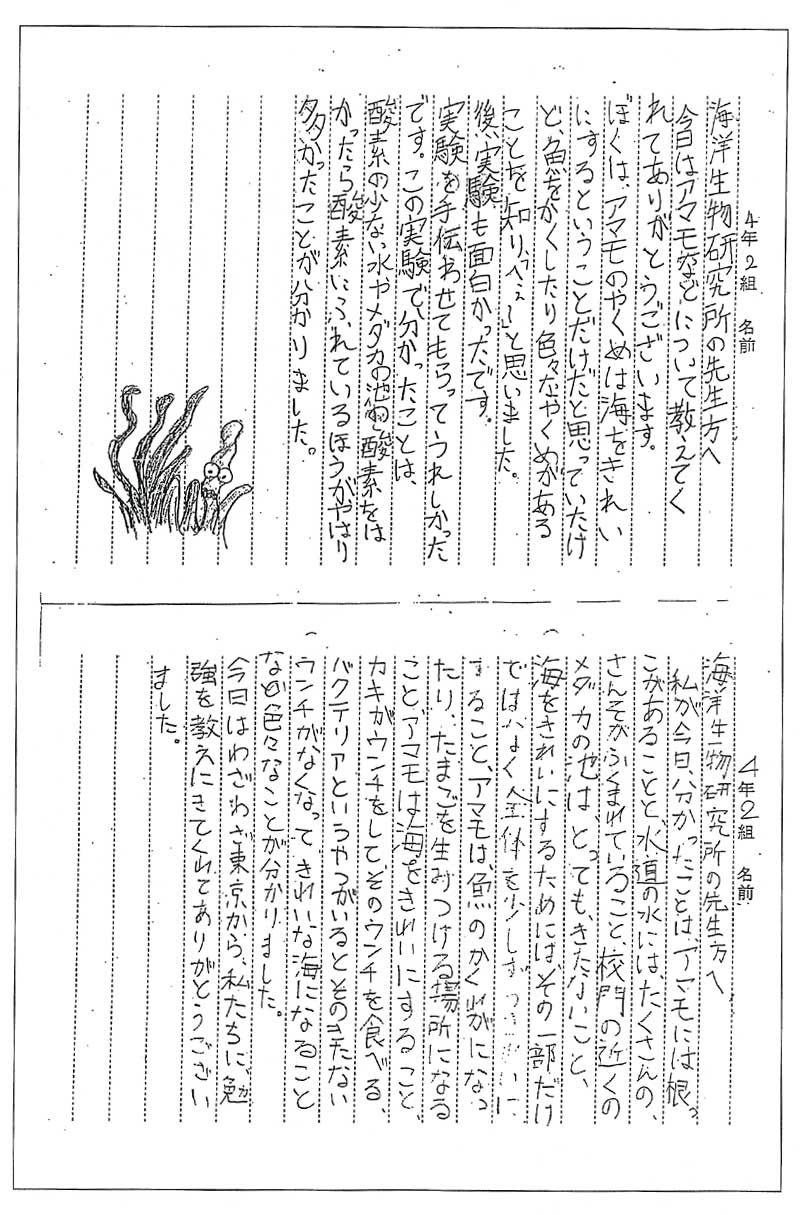 4年2組 名前
海洋生物研究所の先生方へ
今日はアマモなどについて教えてく
れてありがとうございます。
ぼくは、アマモのやくめは海をきれい
にするということだけだと思っていたけ
ど、魚をかくしたり色々なやくめがある
ことを知り、「へぇ〜」と思いました。
後、実験も面白かったです。
実験を手伝わせてもらってうれしかった
です。この実験で、分かったことは、
酸素の少ない水やメダカの池の酸素をは
かったら酸素にふれているほうがやはり
多かったことが分かりました。
4年2組 名前
海洋生物研究所の先生方へ
私が今日、分かったことは、アマモには根っ
こがあることと、水道の水には、たくさんの、
さんそがふくまれていること、校門の近くの
メダカの池は、とっても、きたないこと、
海をきれいにするためには、その一部だけ
ではなく全体を少しずつきれいに
すること、アマモは、魚のかくれがになっ
たり、たまごを生みつける場所になる
こと、アマモは海をきれいにすること、
カキがウンチをしてそのウンチを食べる、
バクテリアというやつがいるとそのきたない
ウンチがなくなってきれいな海になること
など色々なことが分かりました。
今日はわざわざ東京から、私たちに、勉
強を教えにきてくれてありがとうござい
ました。